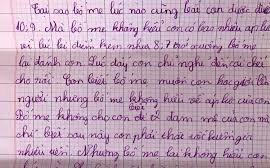 Tại sao bố mẹ lúc nào cũng bắt con được điểm
10, 9. Mà bố mẹ không hiểu con có bao nhiêu áp lực
với lúc lại điểm kém nhua 8, 7 trở xuống bố mẹ
lại đánh con. Lúc đấy con chỉ nghĩ đến cái chết
cho rồi. Con biết bố mẹ muốn con học giỏi lên
người nhưng bố mẹ không hiểu về áp lực của con
Bố mẹ không cho con đi dam mê của con mà
chỉ biết sau này con phải chắt hướng
nhiều tiền. Nhưng bố mẹ lại không hiểu con